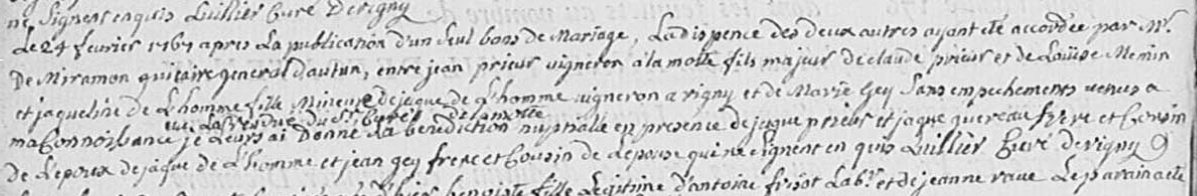 ne signent enquis Lullier Curé De rigny
Le 24 fevrier 1767 apres La publication d'un seul bans de Mariage, La dispence des deux autres ayant eté accordée par Mr.
De Miramon gvicaire general d'autun, entre jean prieur vigneron a la motte fils majeur de claude prieur et de Louise Menin
et jaqueline de L'homme fille Mineure de jaque de L'homme vigneron a rigny et de Marie Gey sans empechements venus a
vue La du Sr. Curé de la motte
ma Connoissance je Leurs ai Donné La benediction nuptialle en presence de jaque prieur et jaque quereau frere et Cousin
De L'epoux de jaque de L'homme et jean gey frere et Cousin de L'epouse qui ne signent en quis Lullier Curé de rigny
benoiste fille Legitime d'antoine Labr. et de jeanne rave Le parain a eté